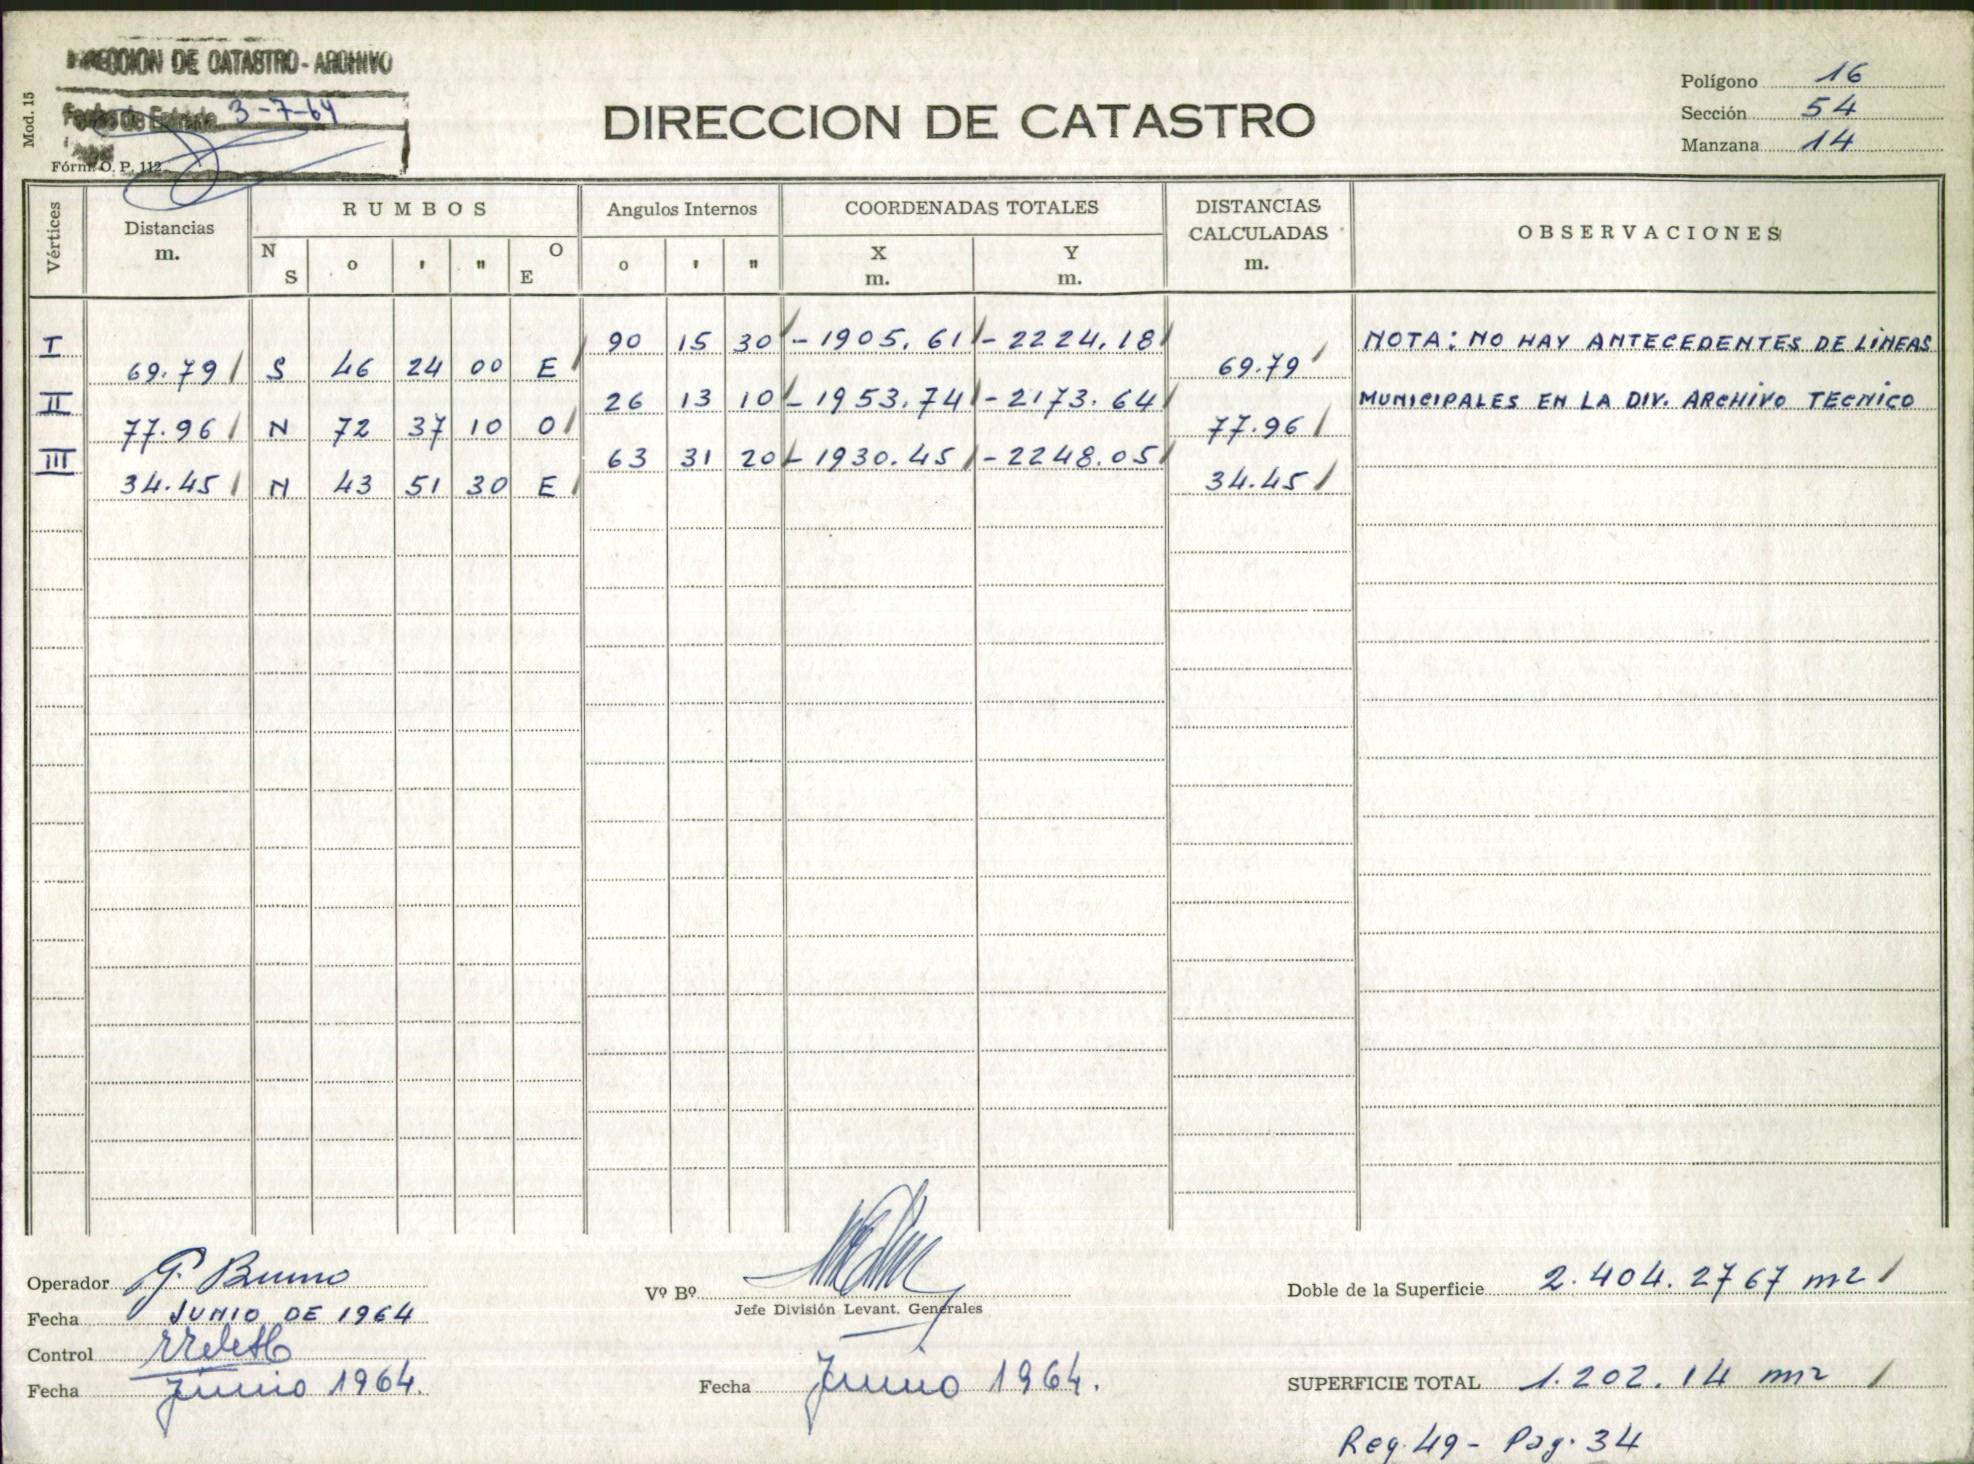 DIRECCION DE CATASTRO - ARCHIVO
Fecha de Entrada 3-7-64
Mod. 15
Fórm. O. P. 112
DIRECCION DE CATASTRO
Polígono 16
Sección 54
Manzana 14
Vértices Distancias m. RUMBOS Angulos Internos COORDENADAS TOTALES DISTANCIAS CALCULADAS m. OBSERVACIONES
N S o ' " O E o ' " X m. Y m.
I 90 15 30 - 1905.61 - 2224.18 NOTA: NO HAY ANTECEDENTES DE LINEAS
69.79 S 46 24 00 E 69.79
II 26 13 10 - 1953.74 - 2173.64 MUNICIPALES EN LA DIV. ARCHIVO TECNICO
77.96 N 72 37 10 O 77.96
III 63 31 20 - 1930.45 - 2248.05
34.45 N 43 51 30 E 34.45
Operador G. Bruno
Fecha JUNIO DE 1964
Control
Fecha Junio 1964.
Vº Bº
Jefe División Levant. Generales
Fecha Junio 1964.
Doble de la Superficie 2.404.2767 m2
SUPERFICIE TOTAL 1.202.14 m2
Reg. 49 - Pag. 34